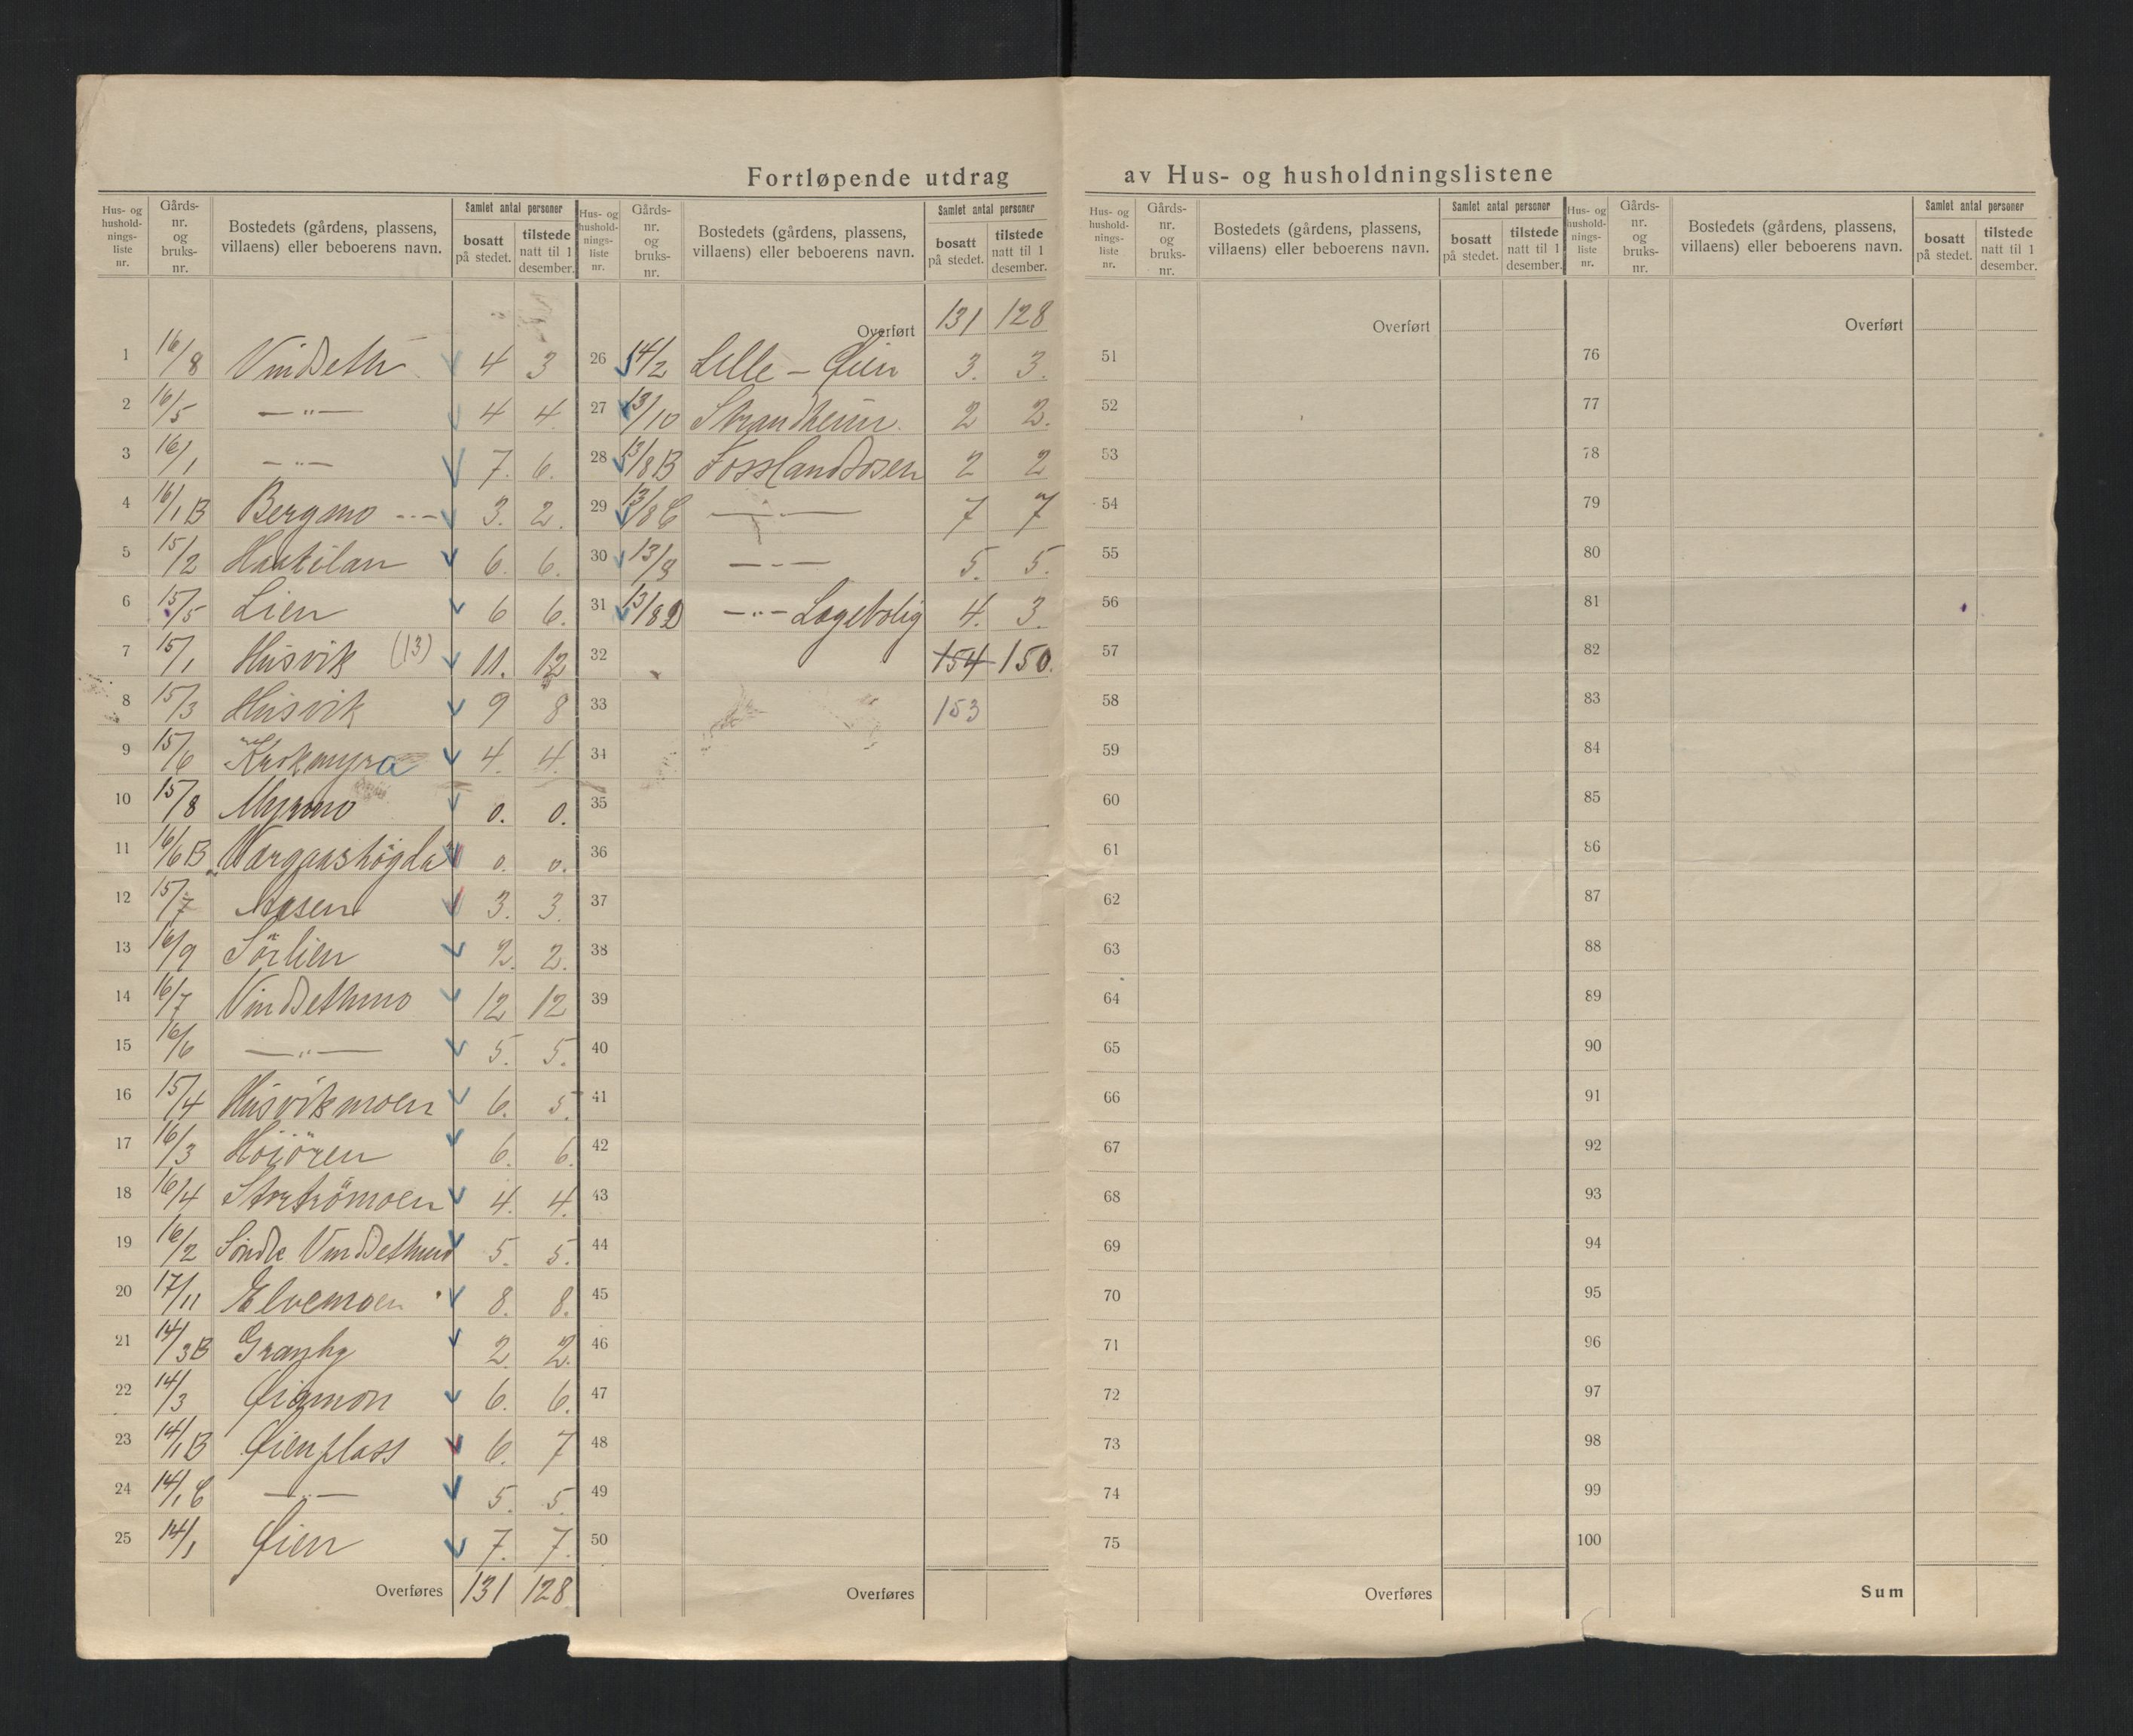 Fortløpende utdrag av Hus- og husholdningslistene
Hus- og hushold-nings-liste nr. Gårds-nr. og bruks-nr. Bostedets (gårdens, plassens, villaens) eller beboerens navn. Samlet antal personer bosatt på stedet. tilstede natt til 1 desember.
1 16/8 Vindseth 4 3
2 16/5 —"— 4 4
3 16/1 —"— 7. 6.
4 16/1 B Bergmo 3. 2.
5 15/2 6. 6.
6 15/5 Lien 6 6.
7 15/1 Husvik (13) 11. 12
8 15/3 Husvik 9 8
9 15/6 Krokmyra 4. 4.
10 15/8 Myrmo 0. 0.
11 16/6 B Vargaashögda 0. 0.
12 15/7 Aasen 3. 3.
13 16/9 Sörlien 2. 2.
14 16/7 Vindsethmo 12 12
15 16/6 —"— 5. 5.
16 15/4 Husvikmoen 6. 5.
17 16/3 Höiören 6. 6.
18 16/4 4. 4.
19 16/2 Vindsethmo 5. 5.
20 17/11 Elvemoen 8. 8.
21 14/3 B Granby 2. 2.
22 14/3 Øiamon 6. 6.
23 14/1 B Øienplass 6. 7
24 14/1 C —"— 5. 5.
25 14/1 Øien 7. 7.
Overføres 131 128
Hus- og hushold-nings-liste nr. Gårds-nr. og bruks-nr. Bostedets (gårdens, plassens, villaens) eller beboerens navn. Samlet antal personer bosatt på stedet. tilstede natt til 1 desember.
Overført 131 128
26 14/2 Lille - Øien 3. 3.
27 13/10 Strandheim. 2 2.
28 13/8 B Fosslandsosen 2 2
29 13/8 C —"— 7 7
30 13/8 —"— 5. 5.
31 13/8 D —"— Lagebolig 4. 3.
32 154 150.
33 153
34
35
36
37
38
39
40
41
42
43
44
45
46
47
48
49
50
Overføres
Hus- og hushold-nings-liste nr. Gårds-nr. og bruks-nr. Bostedets (gårdens, plassens, villaens) eller beboerens navn. Samlet antal personer bosatt på stedet. tilstede natt til 1 desember.
Overført
51
52
53
54
55
56
57
58
59
60
61
62
63
64
65
66
67
68
69
70
71
72
73
74
75
Overføres
Hus- og hushold-nings-liste nr. Gårds-nr. og bruks-nr. Bostedets (gårdens, plassens, villaens) eller beboerens navn. Samlet antal personer bosatt på stedet. tilstede natt til 1 desember.
Overført
76
77
78
79
80
81
82
83
84
85
86
87
88
89
90
91
92
93
94
95
96
97
98
99
100
Sum